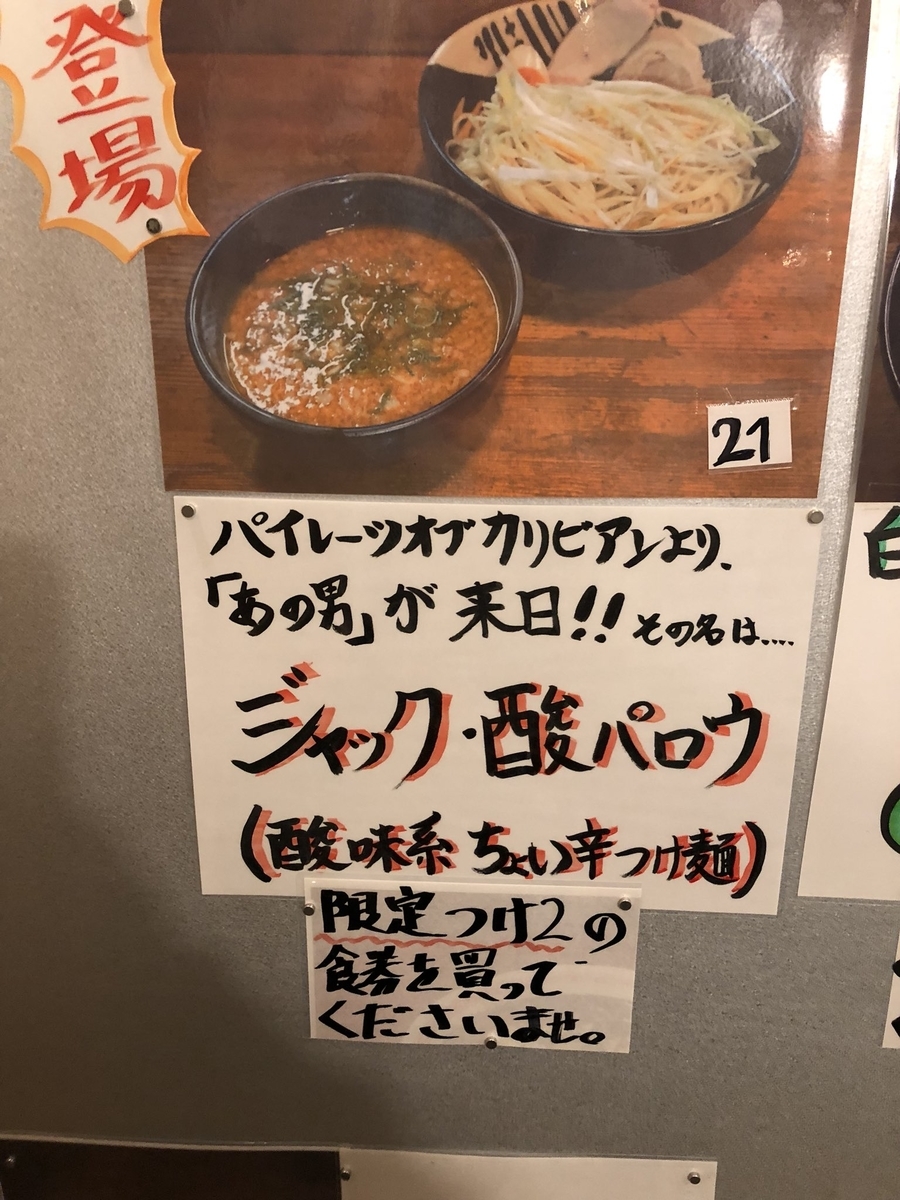 登場
21
パイレーツオブカリビアンより、
「あの男」が来日!! その名は....
ジャック・酸パロウ
(酸味系ちょい辛つけ麺)
限定つけ2の
食券を買って
くださいませ。